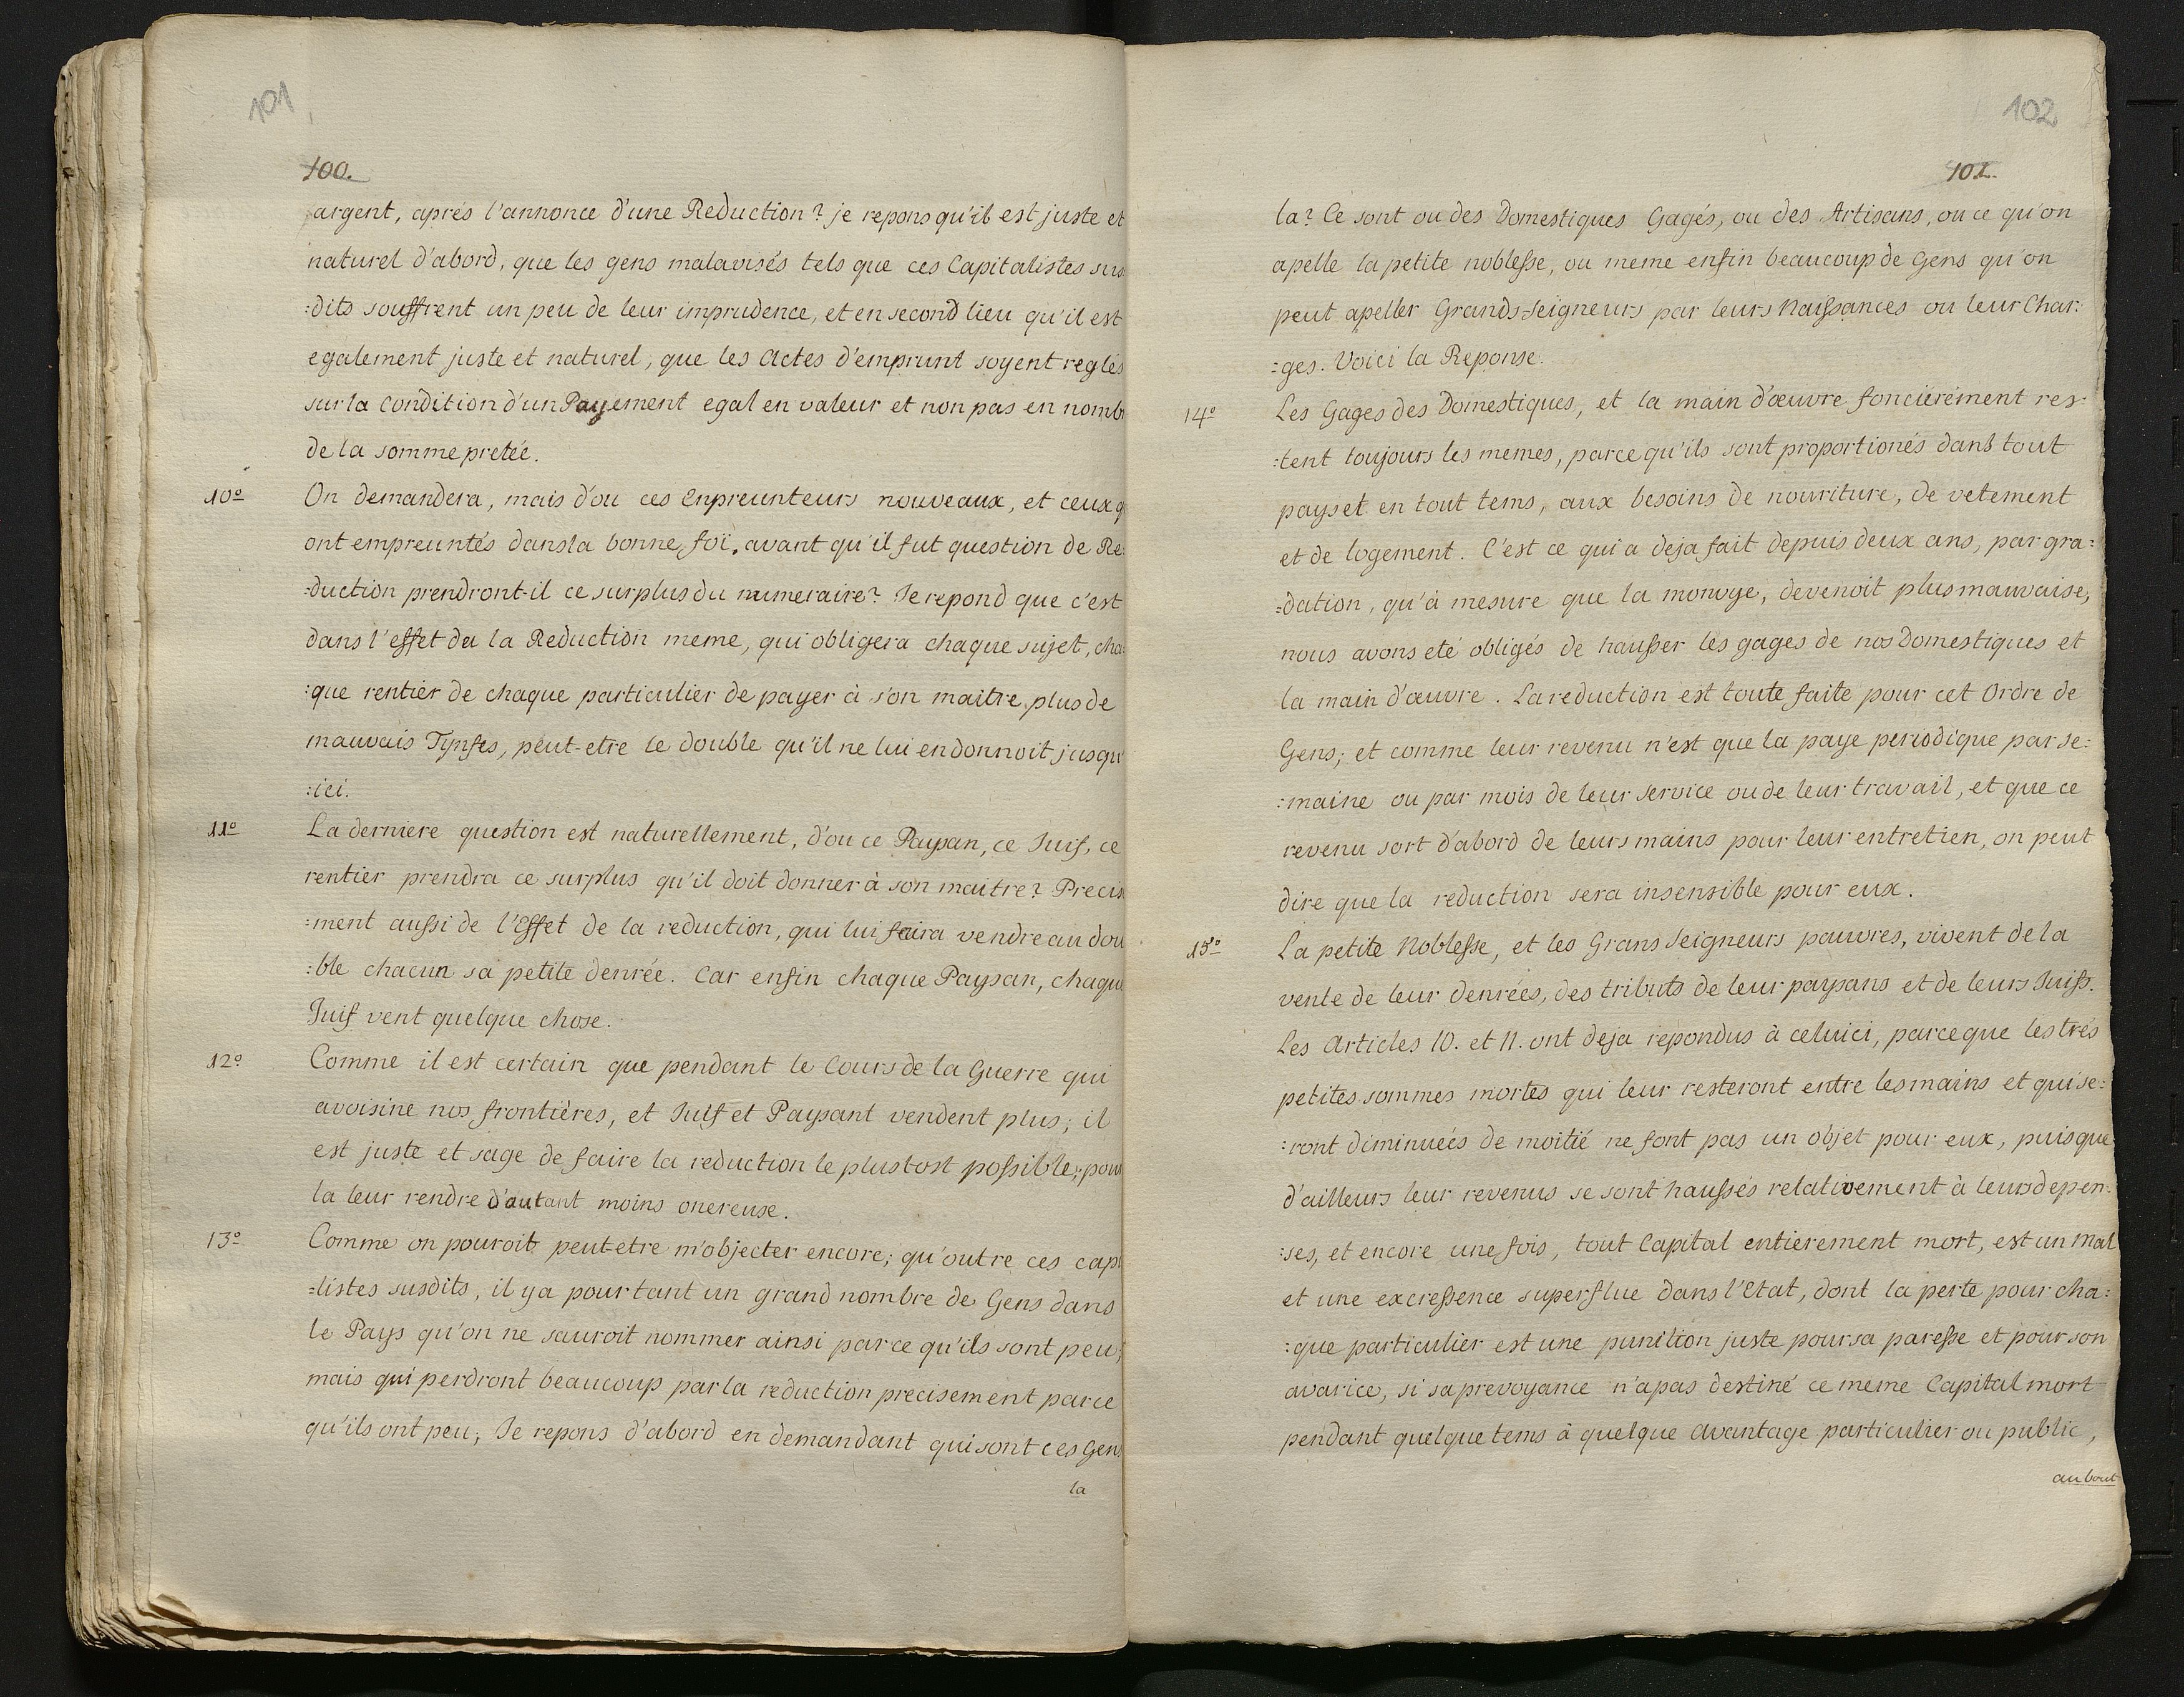 101
100.
argent, aprés l'annonce d'une Reduction? je repons qu'il est juste et
naturel d'abord, que les gens malavisés tels que ces Capitalistes sus
:dits souffrent un peu de leur imprudence, et en second lieu qu'il est
egalement juste et naturel, que les Actes d'emprunt soyent reglés
sur la Condition d'un Payement egal en valeur et non pas en nomb
de la somme pretée.
10º On demandera, mais d'ou ces Enpreunteurs nouveaux, et ceux q
ont empreuntés dans la bonne foi, avant qu'il fut question de Re
:duction prendront-il ce surplus du numeraire? Je repond que c'est
dans l'effet de la Reduction meme, qui obligera chaque sujet, cha
:que rentier de chaque particulier de payer à son maitre, plus de
mauvais Tynfes, peut-etre le double qu'il ne lui en donnoit jusqu'
:ici.
11º La derniere question est naturellement, d'ou ce Paysan, ce Juif, ce
rentier prendra ce surplus qu'il doit donner à son maitre? Precis
:ment aussi de l'Effet de la reduction, qui lui faira vendre au dou
:ble chacun sa petite denrée. Car enfin chaque Paysan, chaque
Juif vent quelque chose.
12º Comme il est certain que pendant le Cours de la Guerre qui
avoisine nos frontières, et Juif et Paysant vendent plus; il
est juste et sage de faire la reduction le plustost possible, pour
la leur rendre d'autant moins onereuse.
13º Comme on pouroit peut-etre m'objecter encore; qu'outre ces capi
:listes susdits, il y a pourtant un grand nombre de Gens dans
le Pays qu'on ne sauroit nommer ainsi parce qu'ils sont peu;
mais qui perdront beaucoup par la reduction precisement parce
qu'ils ont peu; Je repons d'abord en demandant qui sont ces Gens
la
102
101.
la? Ce sont ou des Domestiques Gagés, ou des Artisans, ou ce qu'on
apelle la petite noblesse, ou meme enfin beaucoup de Gens qu'on
peut apeller Grands-Seigneurs par leurs Naissances ou leur Char:
:ges. Voici la Reponse.
14º Les Gages des Domestiques, et la main d'œuvre fonciérément res:
:tent toujours les memes, parce qu'ils sont proportionés dans tout
pays et en tout tems, aux besoins de nouriture, de vetement
et de logement. C'est ce qui a deja fait depuis deux ans, par gra:
:dation, qu'à mesure que la monoye, devenoit plus mauvaise,
nous avons eté obligés de hausser les gages de nos Domestiques et
la main d'œuvre. La reduction est toute faite pour cet Ordre de
Gens; et comme leur revenu n'est que la paye periodique par se:
:maine ou par mois de leur service ou de leur travail, et que ce
revenu sort d'abord de leurs mains pour leur entretien, on peut
dire que la reduction sera insensible pour eux.
15º La petite Noblesse, et les Grans Seigneurs pauvres, vivent de la
vente de leur denrées, des tributs de leur paysans et de leurs Juifs.
Les Articles 10. et 11. ont deja repondus à celuici, parceque les trés
petites sommes mortes qui leur resteront entre les mains et qui se:
:ront diminueés de moitié ne font pas un objet pour eux, puisque
d'ailleurs leur revenus se sont haussés relativement à leurs depen:
:ses, et encore une fois, tout Capital entiérement mort, est un Mal
et une excressence superflue dans l'Etat, dont la perte pour cha:
:que particulier est une punition juste pour sa paresse et pour son
avarice, si sa prevoyance n'a pas destiné ce meme Capital mort
pendant quelque tems à quelque Avantage particulier ou public,
au bout